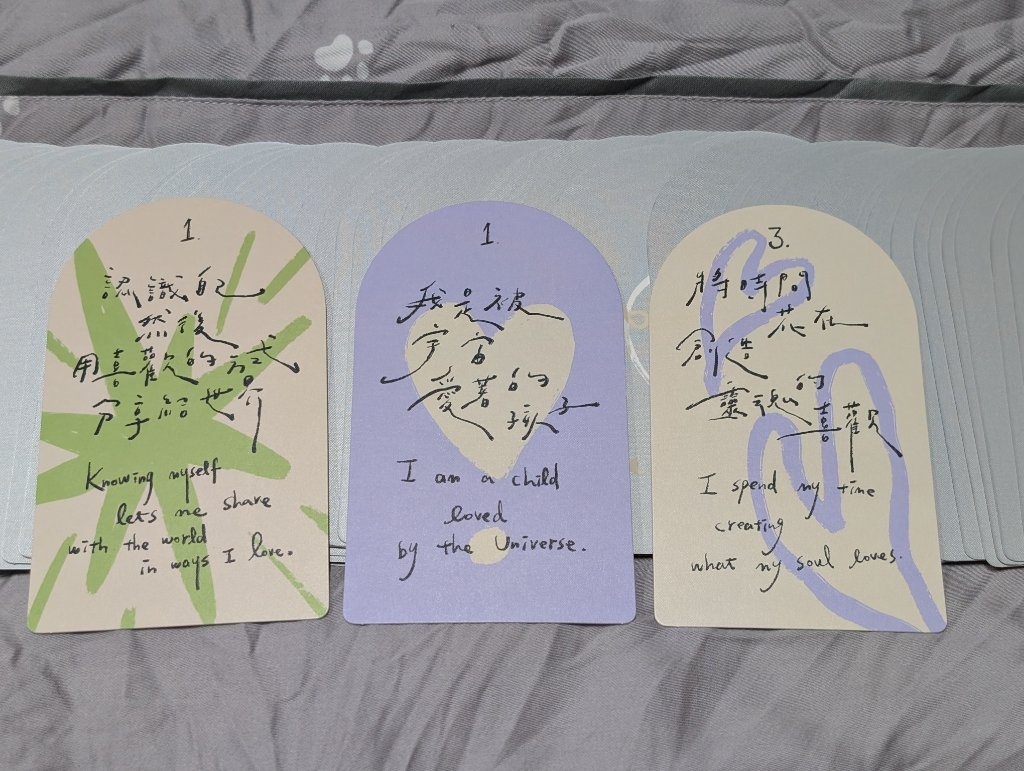 1.
認識自己
然後
用喜歡的方式
分享給世界
Knowing myself
lets me share
with the world
in ways I love.
1.
我是被
宇宙
愛著的
孩子
I am a child
loved
by the Universe.
3.
將時間
花在
創造
靈魂的
喜歡
I spend my time
creating
what my soul loves.